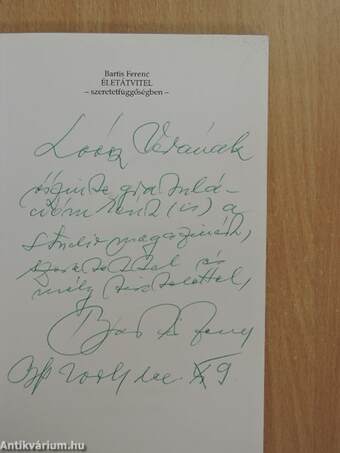 Bartis Ferenc
ÉLETÁTVITEL
– szeretetfüggőségben –
Loósz Verának
őszinte gratulá-
cióm ként (is) a
magazinért,
szeretettel és
mély tisztelettel,
Bartis Ferenc
Bp 2004
9
Antikvárium.hu